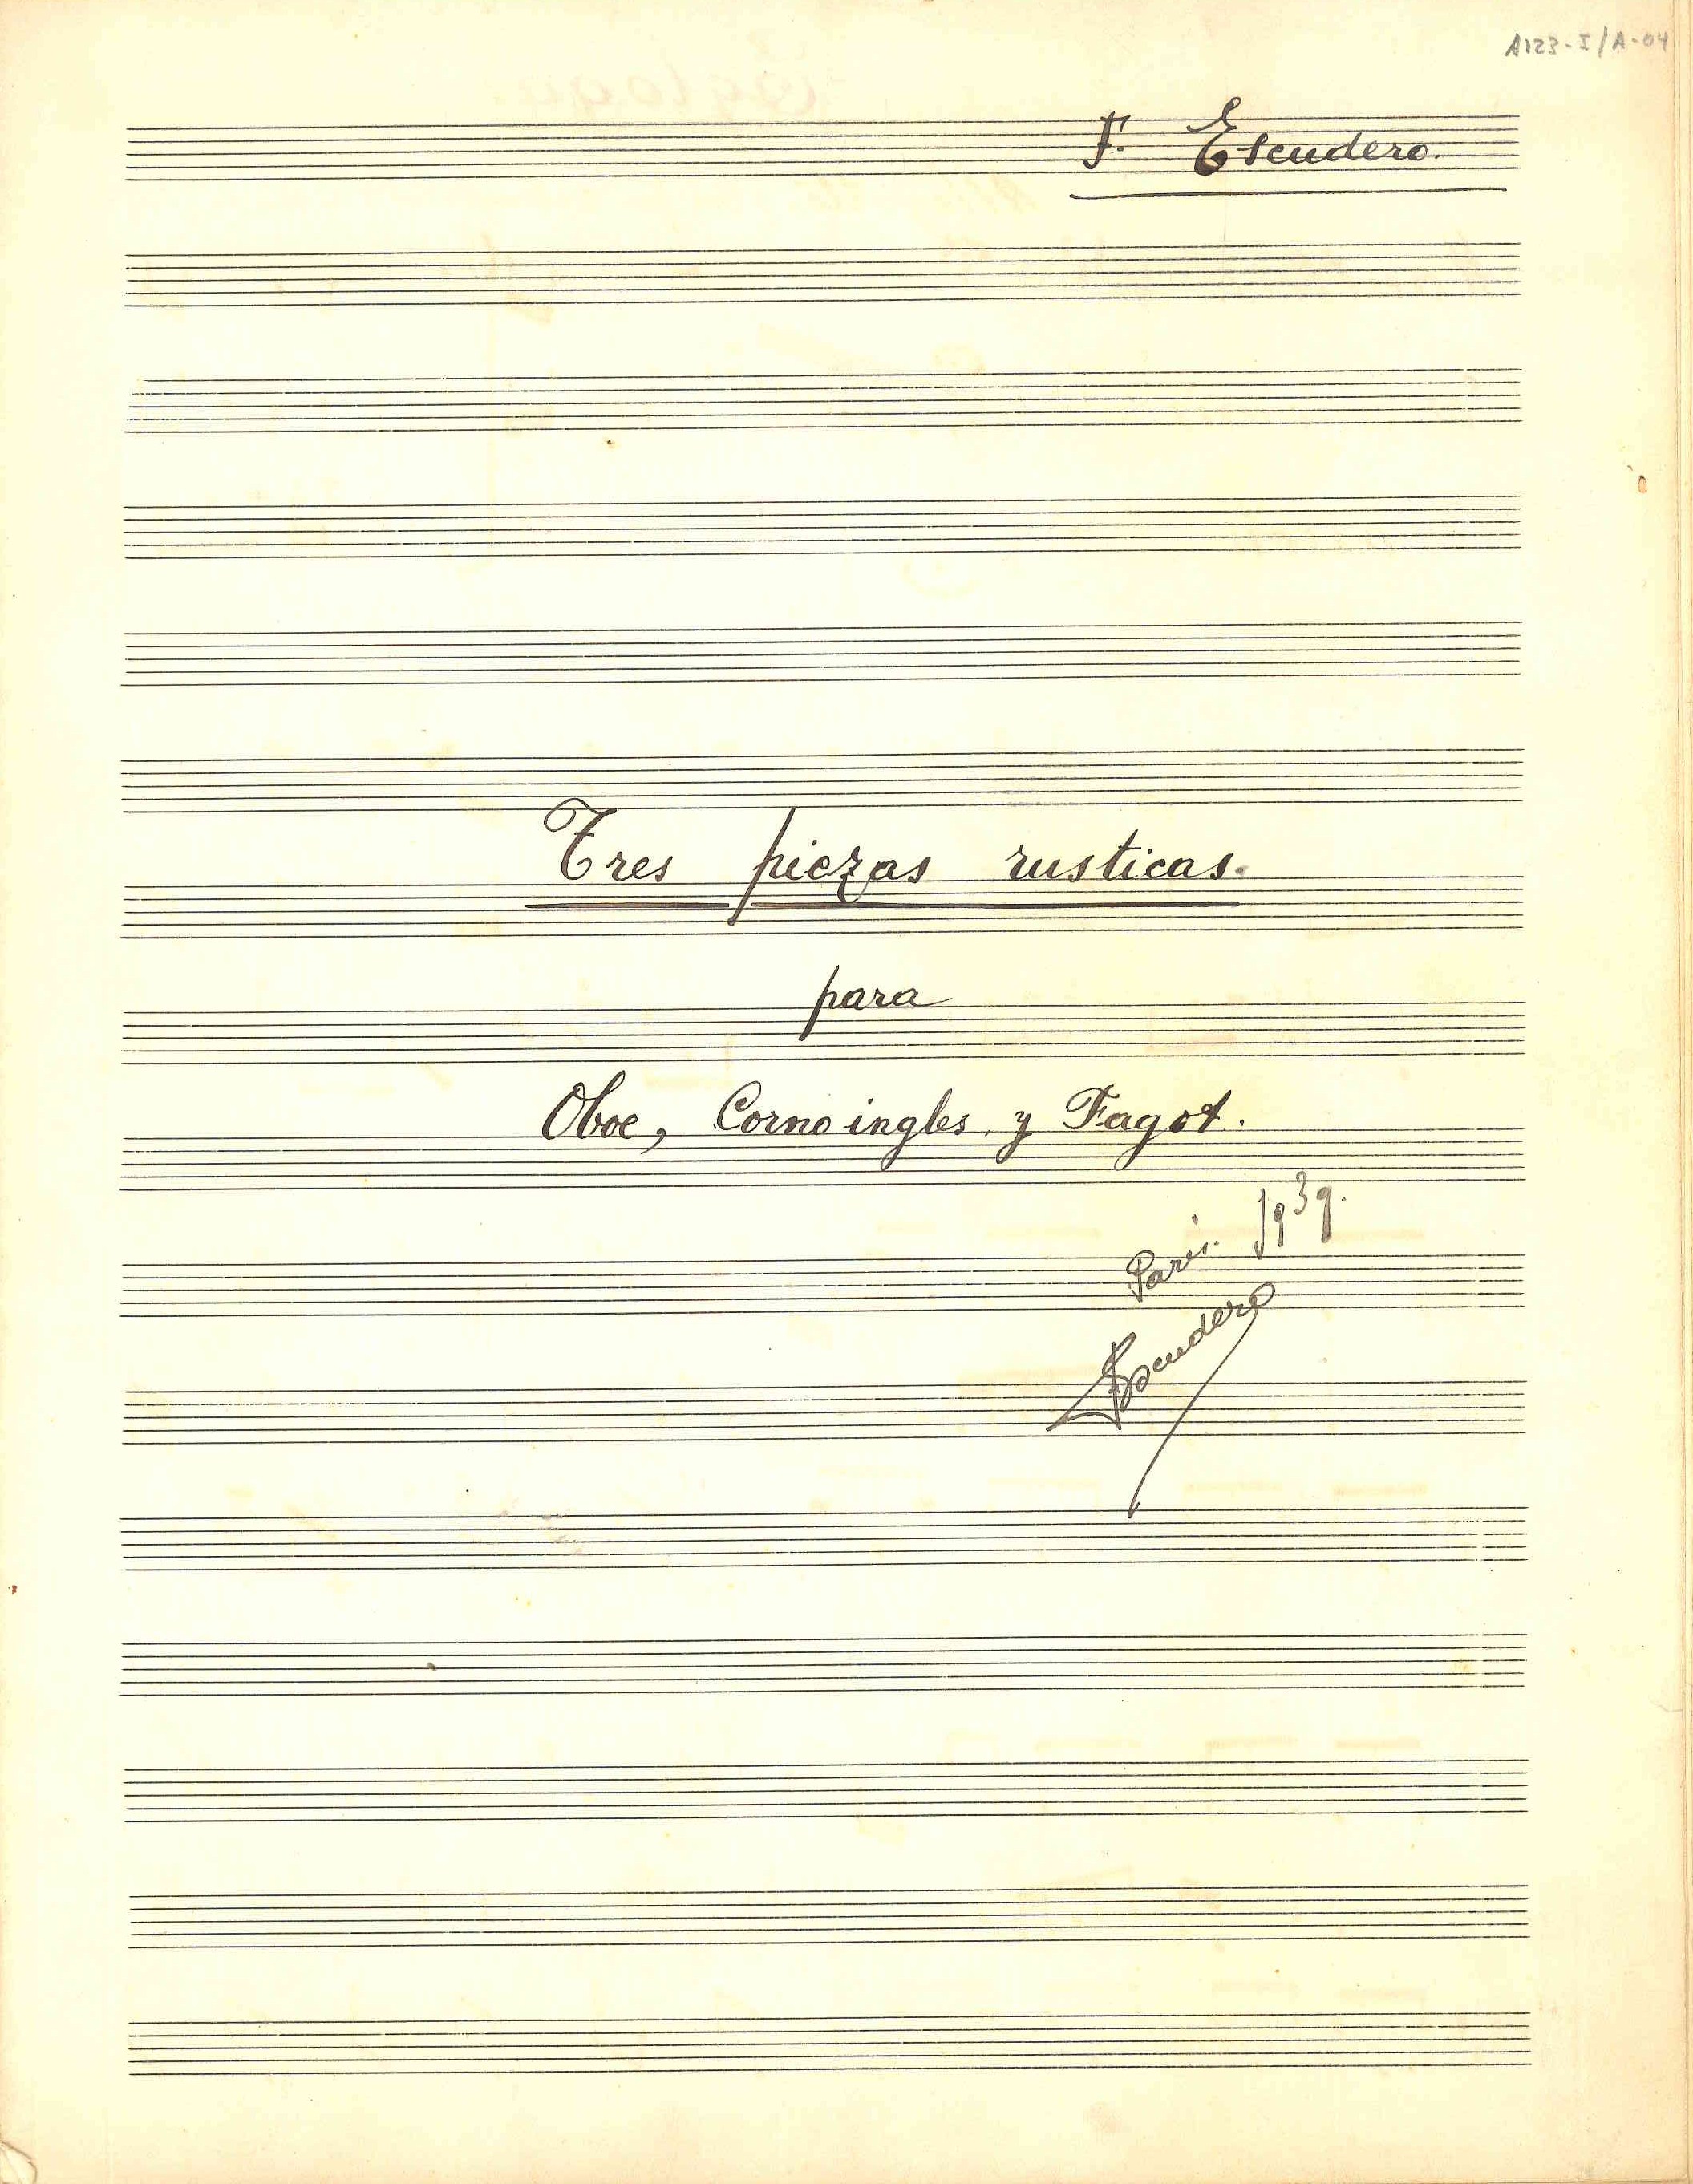 A123-I/A-04
F. Escudero.
Tres piezas rusticas.
para
Oboe, Corno ingles y Fagot.
Paris. 1939.
Escudero